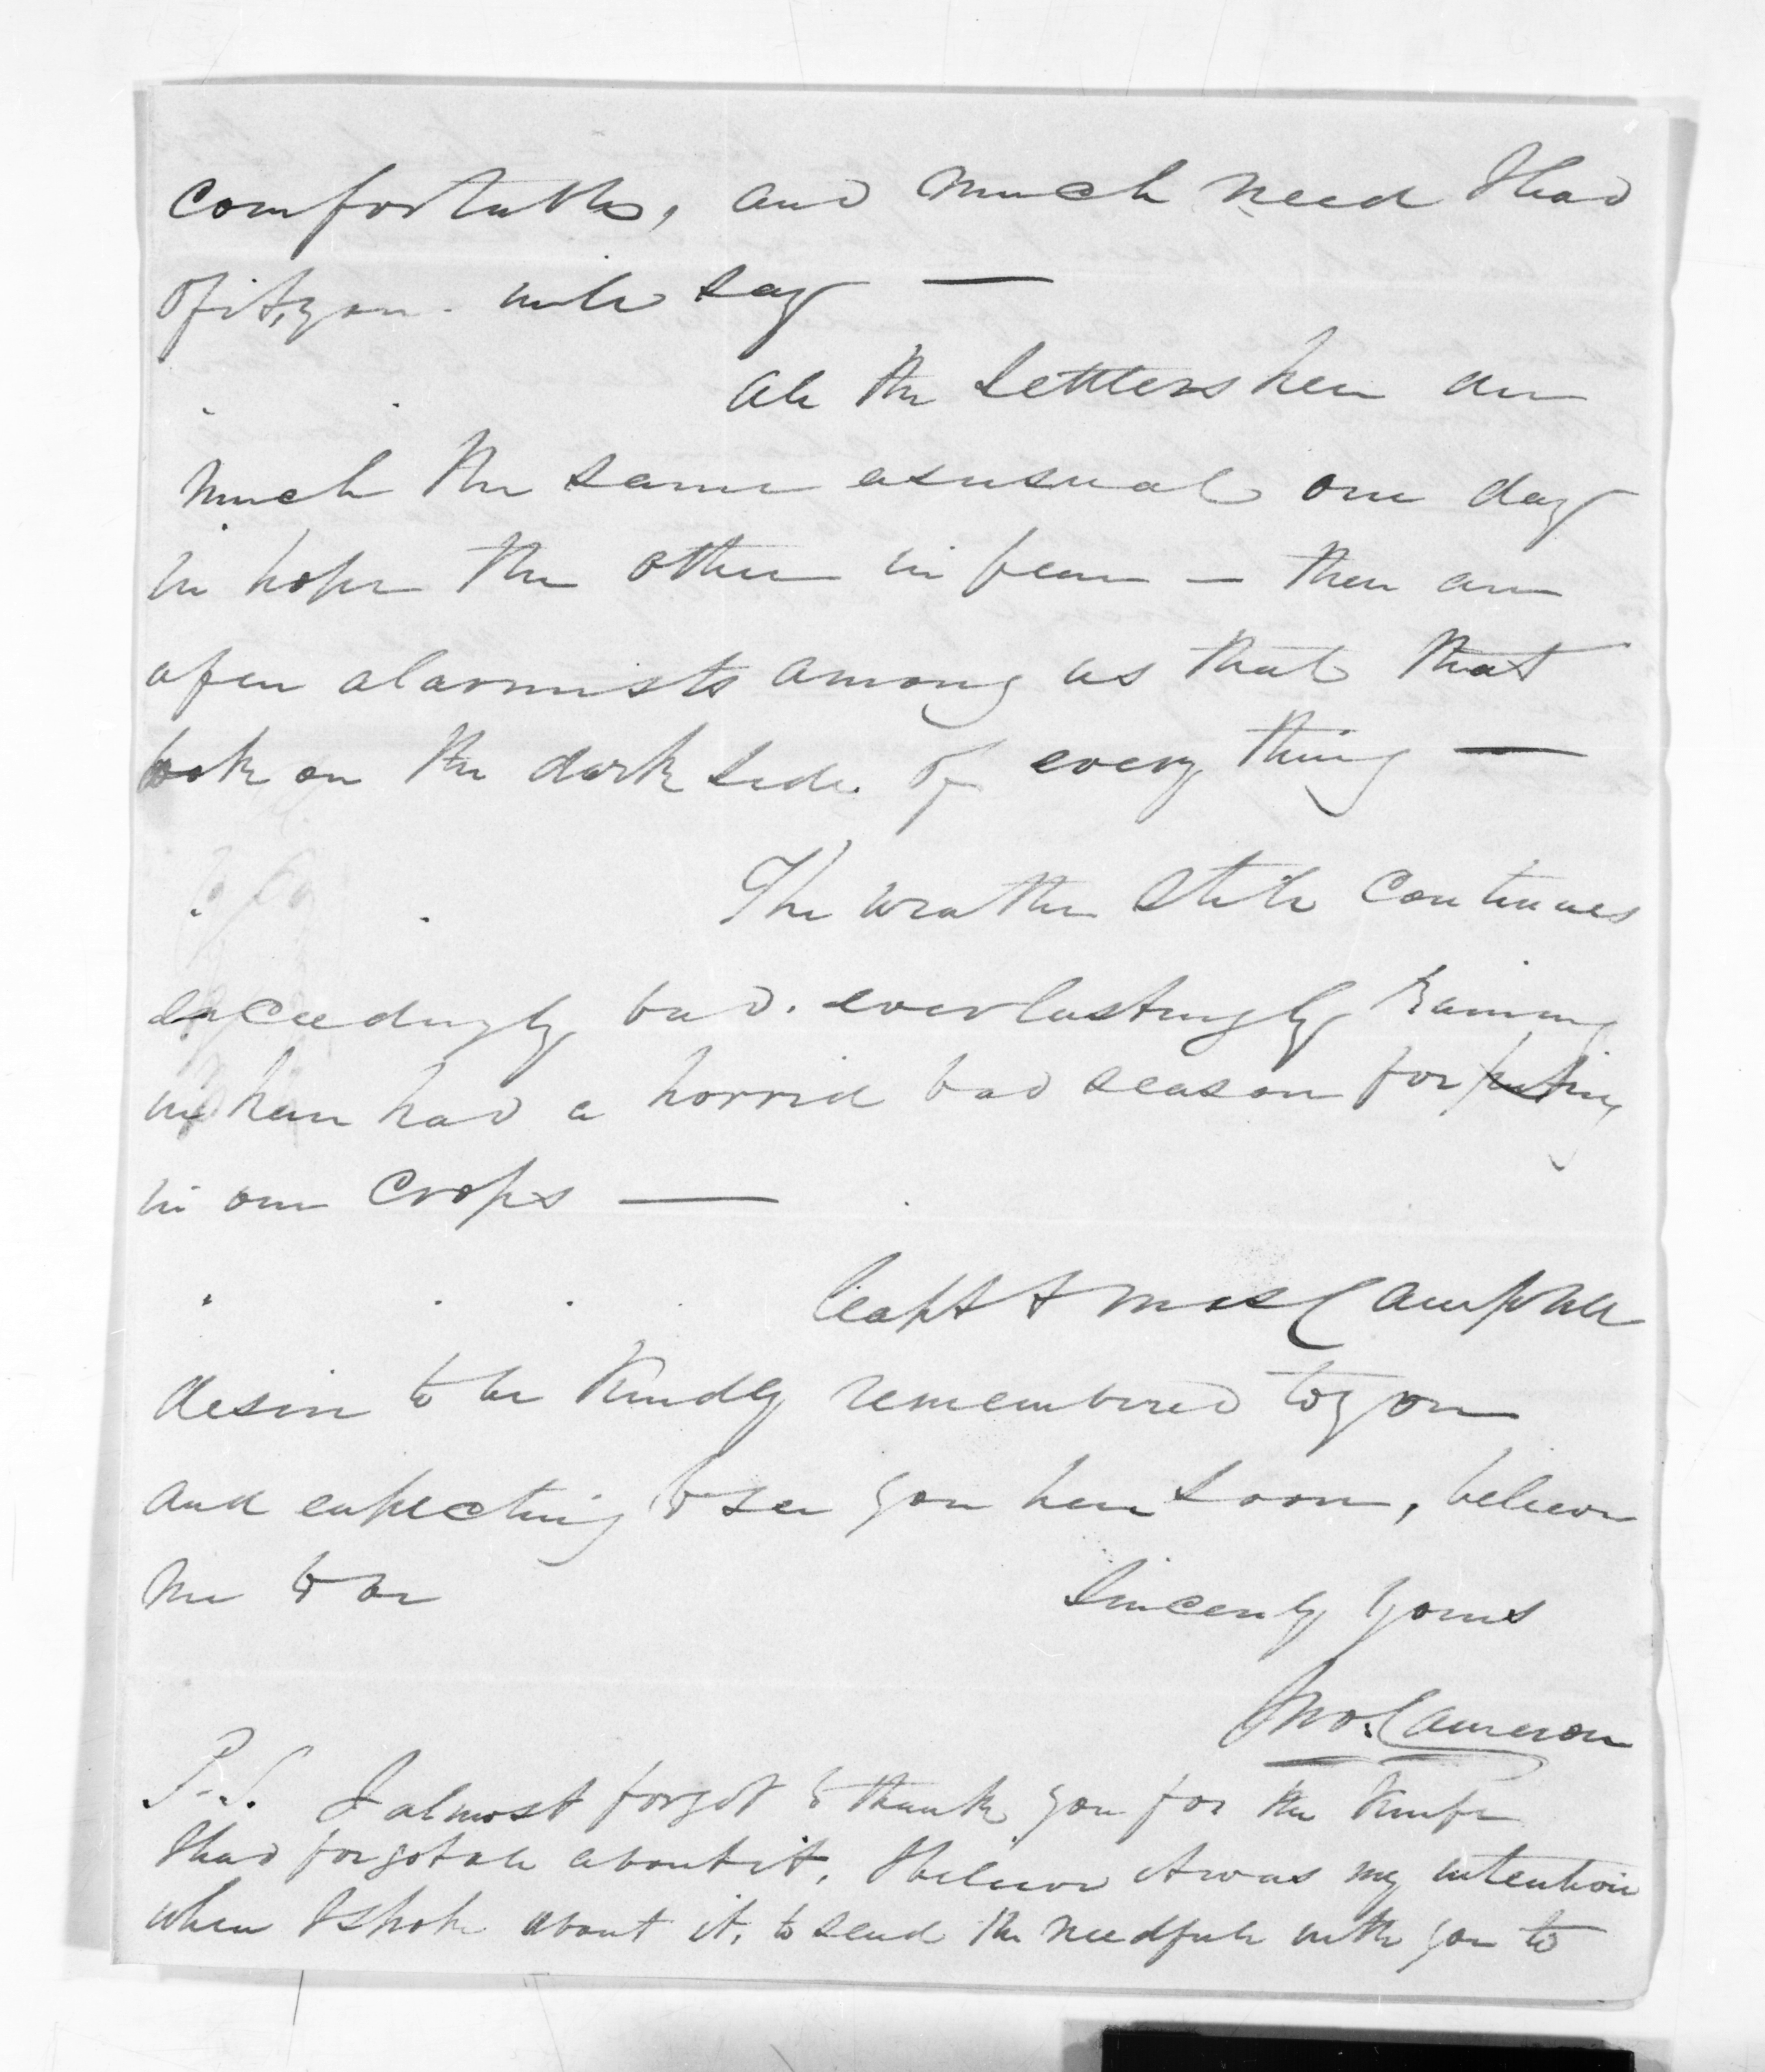 comfortable, and much need I had
of it, you will say —
All the settlers here are
much the same as usual one day
in hope the other in fear — there are
a few alarmists among us that that
look on the dark side of every thing —
The weather still continues
exceedingly bad. everlastingly raining
we have had a horrid bad season for putting
in our crops —
Capt & Mrs Campbell
desire to be kindly remembered to you
and expecting to see you here soon, believe
me to be sincerely yours
Jno. Cameron
P.S. I almost forgot to thank you for the knife
I had forgot all about it, I believe it was my intention
when I spoke about it, to send the needfull with you to